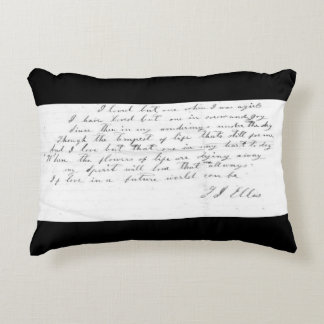 I loved but one when I was a girl
I have loved but one in
Since then in my wanderings under the sky
Through the tempest of life that's still for me
And I love but that one in my heart to day
When the flowers of life are dying away
my Spirit will love that always
If love in a future world can be
Ellis